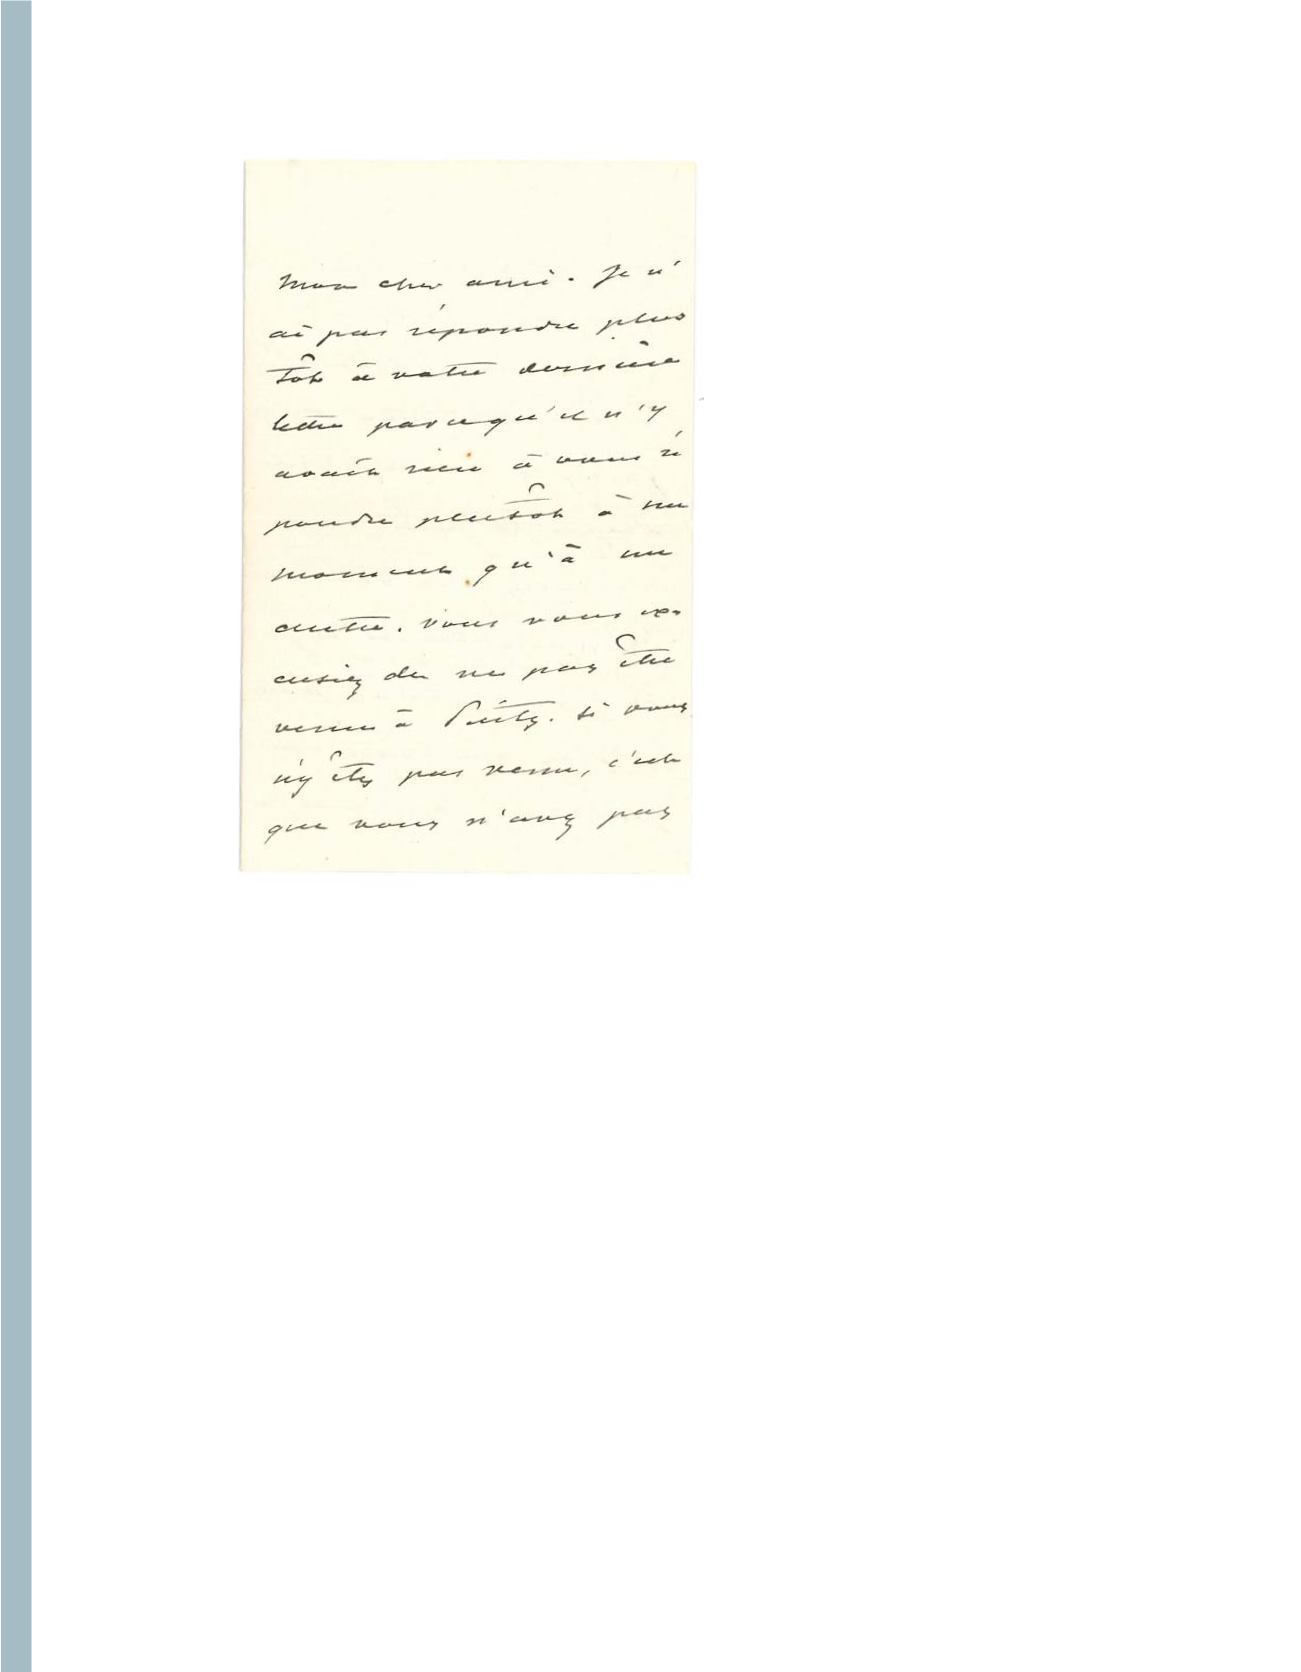 Mon cher ami. Je n'
ai pas répondu plus
tôt à votre dernière
lettre parcequ'il n'y
avait rien à vous ré
pondre plutôt à un
moment qu'à un
autre. Vous vous ex-
cusiez de ne pas être
venu à. Si vous
n'y êtes pas venu, c'est
que vous n'avez pas